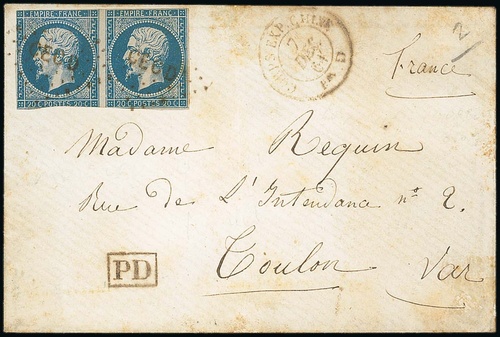 EMPIRE FRANC. EMPIRE FRANC.
20 C POSTES 20 C 20 C POSTES 20 C
7
D
2
France
Madame Requin
Rue de L'Intendance n° 2.
PD
Toulon Var